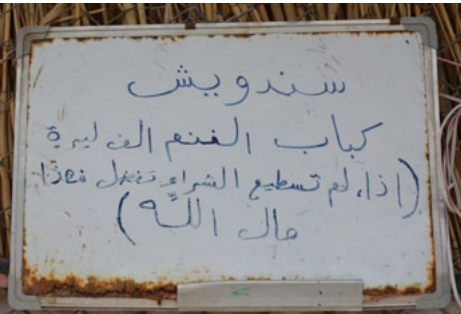 سندويش
كباب الغنم الف ليرة
(اذا لم تسطيع الشراء تفضل فهذا
مال اللّه)